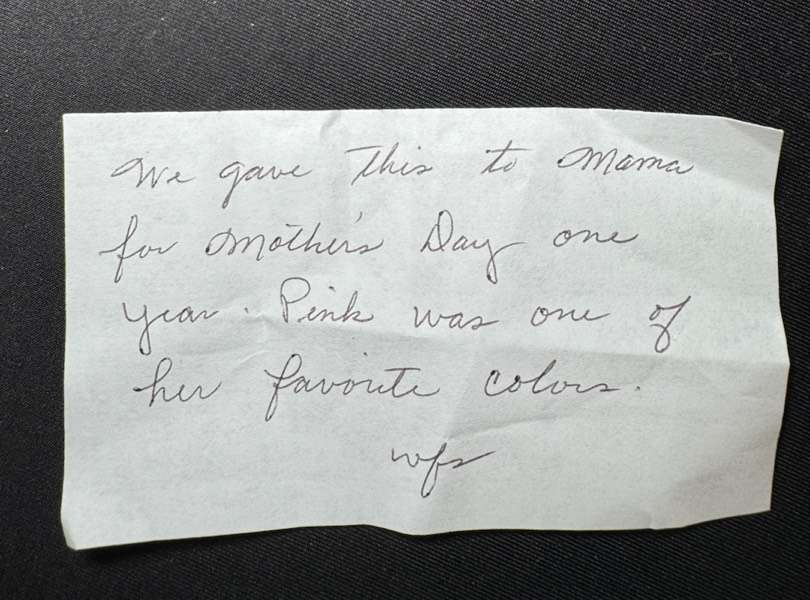 We gave this to Mama
for Mother's Day one
year. Pink was one of
her favorite colors.
wfs